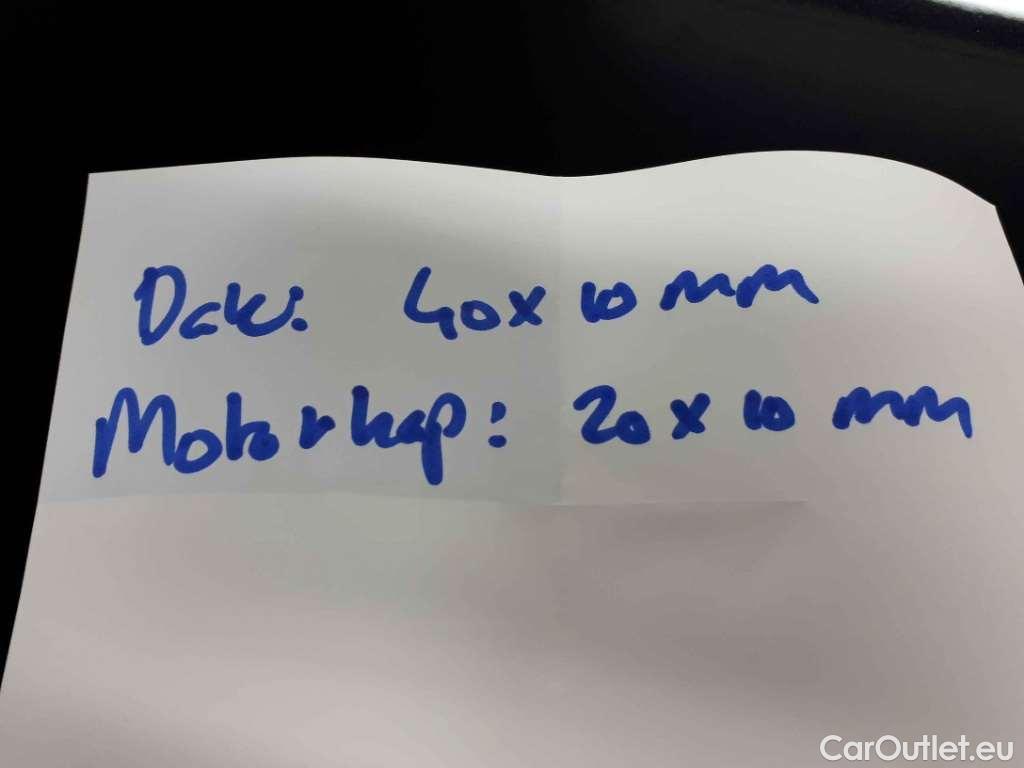 Dak: 40 x 10 mm
Motorkap: 20 x 10 mm
CarOutlet.eu